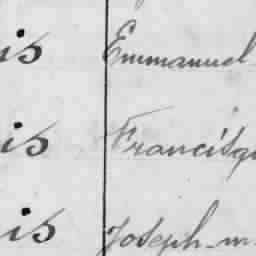 is Emmanuel
is Francisq
is Joseph-m